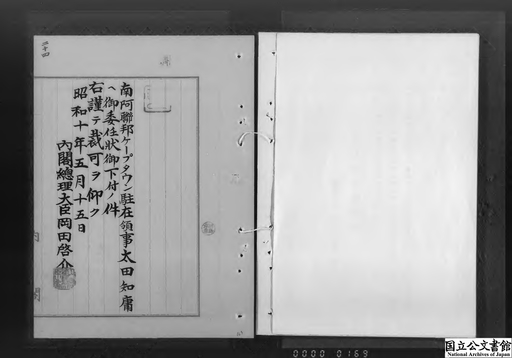 南阿聯邦ケープタウン駐在領事太田知庸
ヘ御委任狀御下付ノ件
右謹テ裁可ヲ仰ク
昭和十年五月十五日
內閣總理大臣岡田啓介
四十四
0000 0169
国立公文書館
National Archives of Japan